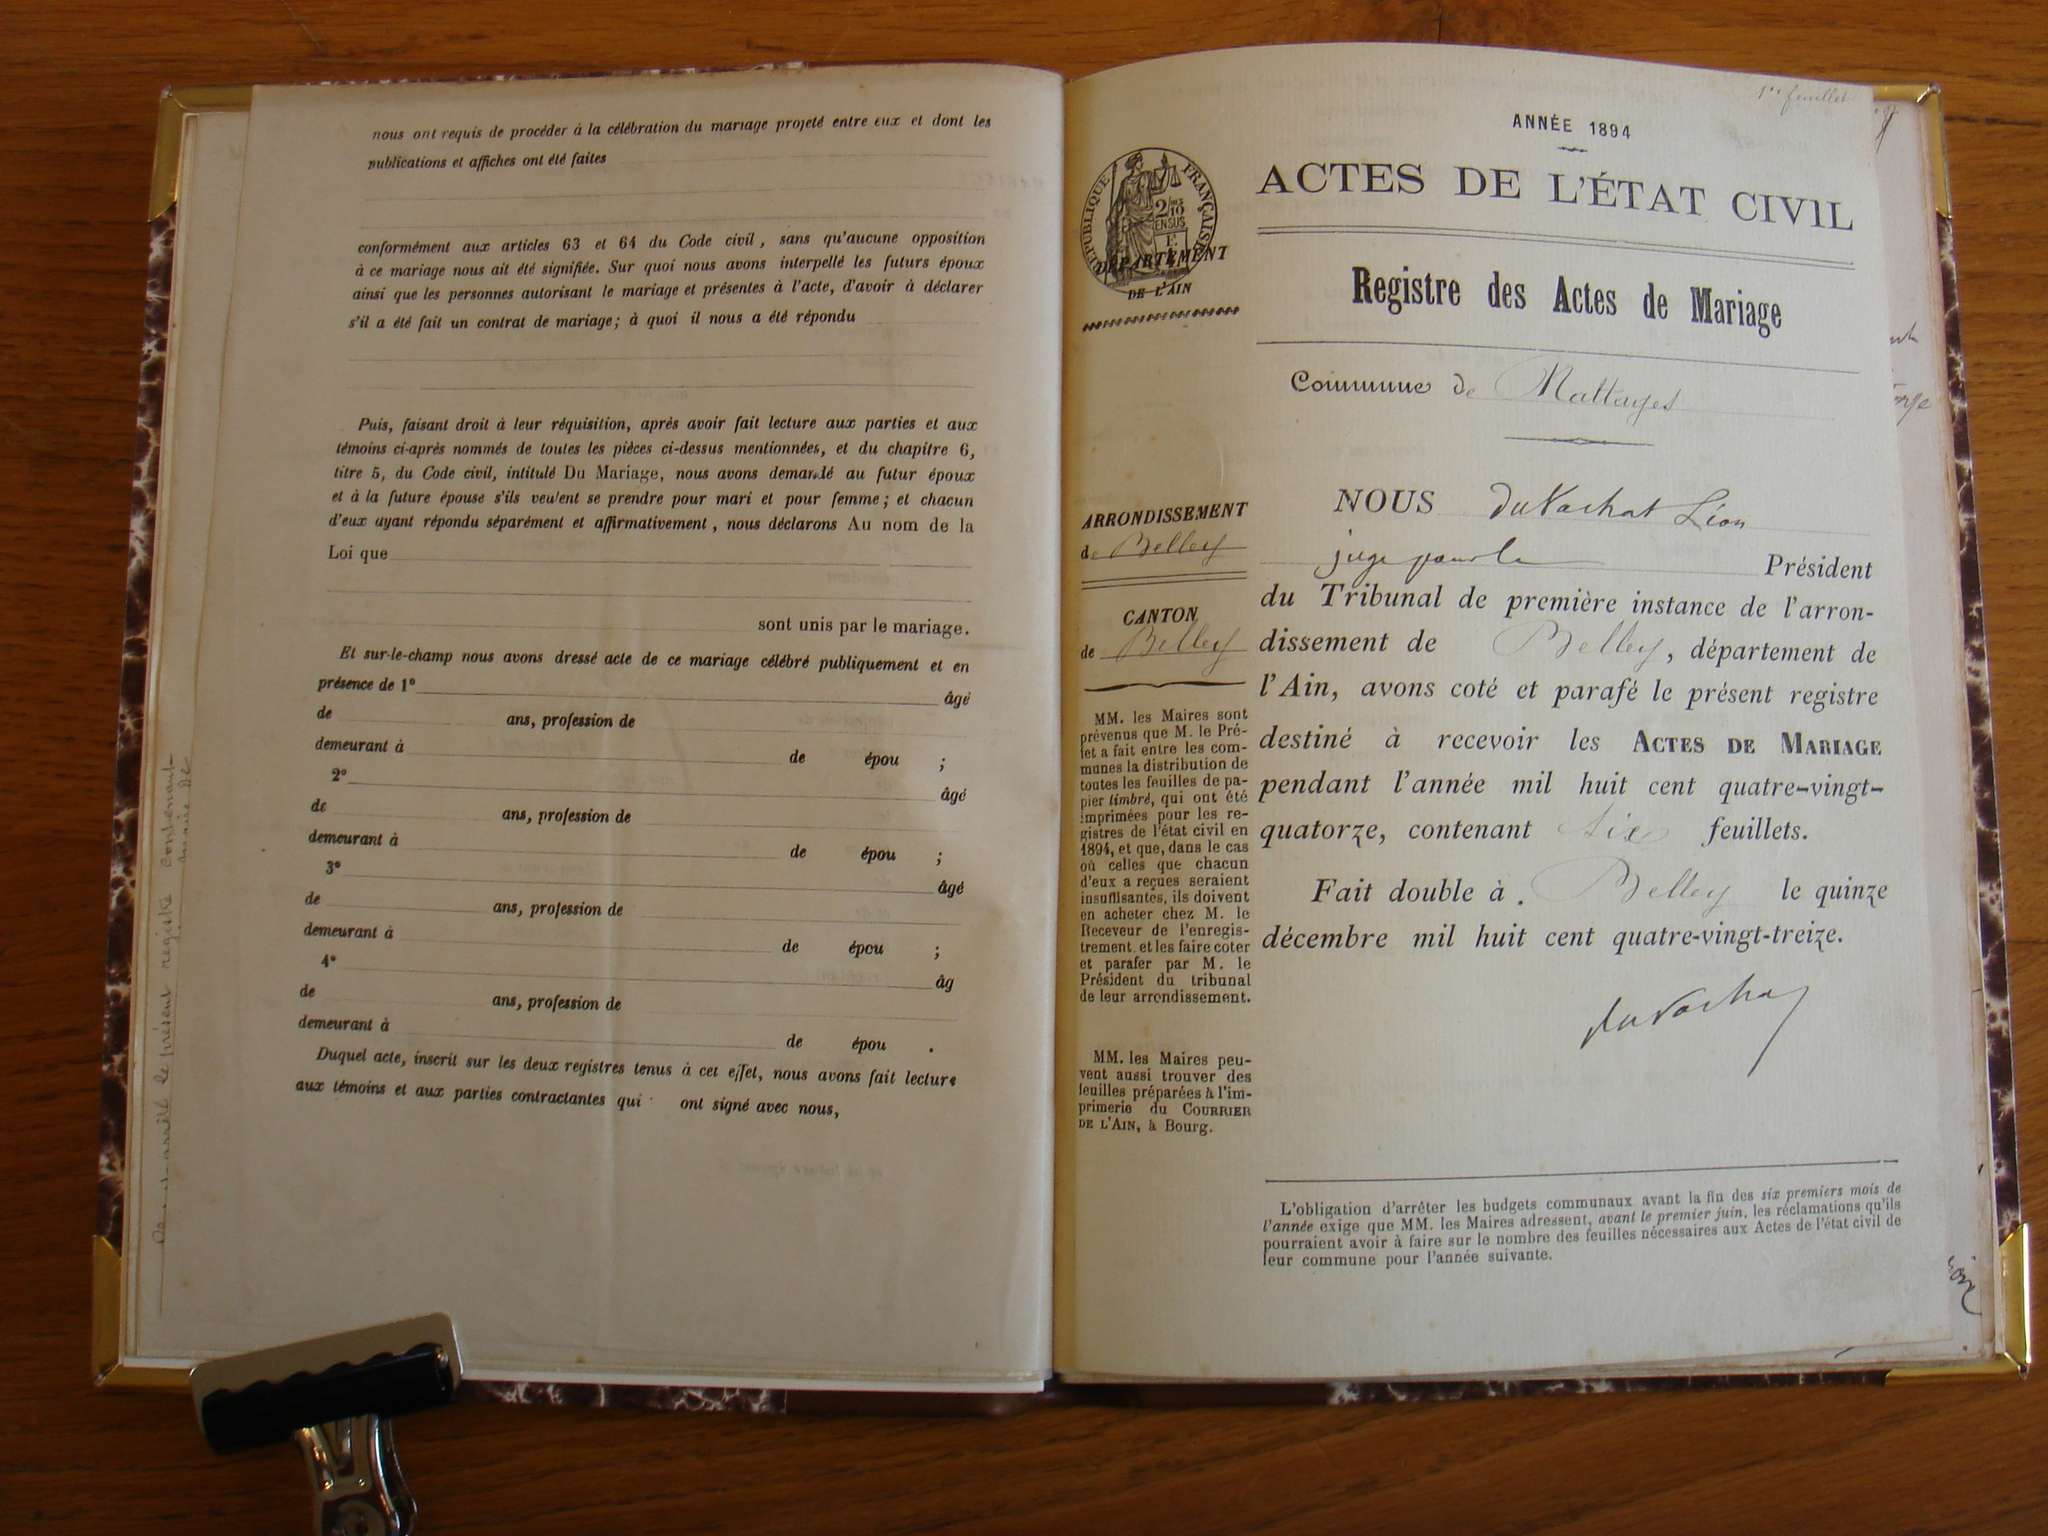 nous ont requis de procéder à la célébration du mariage projeté entre eux et dont les
publications et affiches ont été faites
conformément aux articles 63 et 64 du Code civil, sans qu'aucune opposition
à ce mariage nous ait été signifiée. Sur quoi nous avons interpellé les futurs époux
ainsi que les personnes autorisant le mariage et présentes à l'acte, d'avoir à déclarer
s'il a été fait un contrat de mariage; à quoi il nous a été répondu
Puis, faisant droit à leur réquisition, après avoir fait lecture aux parties et aux
témoins ci-après nommés de toutes les pièces ci-dessus mentionnées, et du chapitre 6,
titre 5, du Code civil, intitulé Du Mariage, nous avons demandé au futur époux
et à la future épouse s'ils veulent se prendre pour mari et pour femme; et chacun
d'eux ayant répondu séparément et affirmativement, nous déclarons Au nom de la
Loi que
sont unis par le mariage.
Et sur-le-champ nous avons dressé acte de ce mariage célébré publiquement et en
présence de 1° âgé
de ans, profession de
demeurant à de épou ;
2° âgé
de ans, profession de
demeurant à de épou ;
3° âgé
de ans, profession de
demeurant à de épou ;
4° âg
de ans, profession de
demeurant à de épou .
Duquel acte, inscrit sur les deux registres tenus à cet effet, nous avons fait lecture
aux témoins et aux parties contractantes qui ont signé avec nous,
arrêté le présent registre contenant
année de
1er feuillet
ANNÉE 1894
ACTES DE L'ÉTAT CIVIL
RÉPUBLIQUE FRANÇAISE
DÉPARTEMENT
DE L'AIN
Registre des Actes de Mariage
Commune de Nattages
ARRONDISSEMENT
de Belley
CANTON
de Belley
MM. les Maires sont
prévenus que M. le Pré-
fet a fait entre les com-
munes la distribution de
toutes les feuilles de pa-
pier timbré, qui ont été
imprimées pour les re-
gistres de l'état civil en
1894, et que, dans le cas
où celles que chacun
d'eux a reçues seraient
insuffisantes, ils doivent
en acheter chez M. le
Receveur de l'enregis-
trement et les faire coter
et parafer par M. le
Président du tribunal
de leur arrondissement.
MM. les Maires peu-
vent aussi trouver des
feuilles préparées à l'im-
primerie du COURRIER
DE L'AIN, à Bourg.
NOUS du Vachat Léon
juge pour le Président
du Tribunal de première instance de l'arron-
dissement de Belley, département de
l'Ain, avons coté et parafé le présent registre
destiné à recevoir les ACTES DE MARIAGE
pendant l'année mil huit cent quatre-vingt-
quatorze, contenant six feuillets.
Fait double à Belley le quinze
décembre mil huit cent quatre-vingt-treize.
du Vachat
L'obligation d'arrêter les budgets communaux avant la fin des six premiers mois de
l'année exige que MM. les Maires adressent, avant le premier juin, les réclamations qu'ils
pourraient avoir à faire sur le nombre des feuilles nécessaires aux Actes de l'état civil de
leur commune pour l'année suivante.